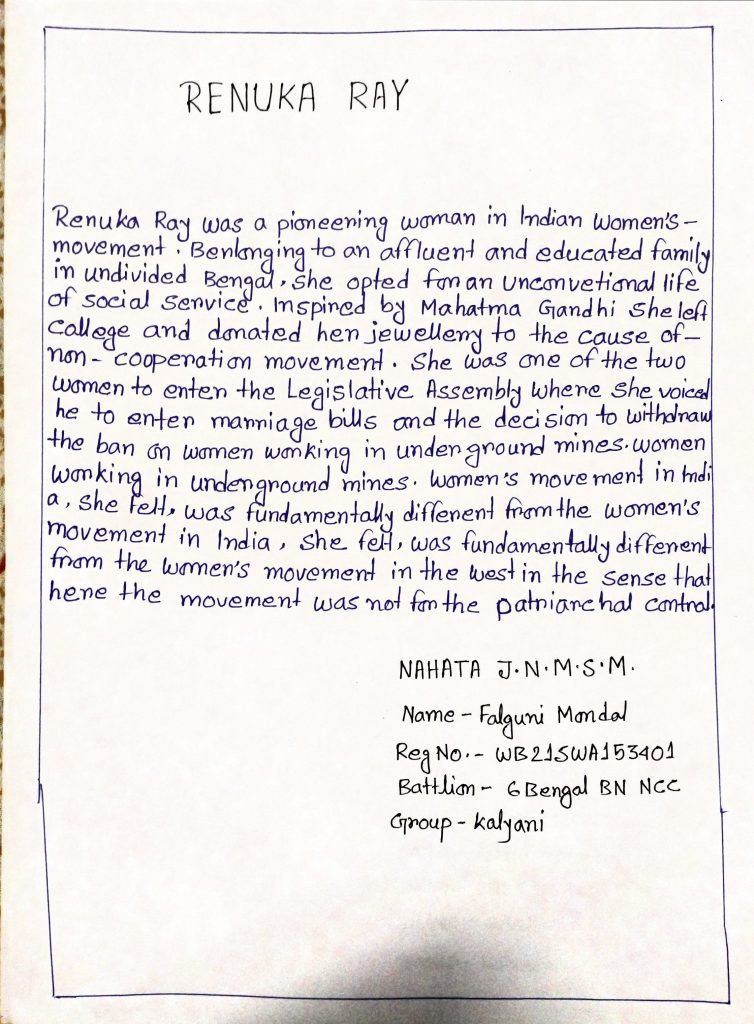 RENUKA RAY
Renuka Ray was a pioneering woman in Indian women's-
movement. Benlonging to an affluent and educated family
in undivided Bengal, she opted for an unconvetional life
of social service. Inspired by Mahatma Gandhi she left
College and donated her jewellery to the cause of-
non-cooperation movement. She was one of the two
women to enter the Legislative Assembly where she voiced
he to enter marriage bills and the decision to withdraw
the ban on women working in underground mines. women
working in underground mines. Women's movement in Indi
a, she felt, was fundamentally different from the women's
movement in India, she felt, was fundamentally different
from the women's movement in the west in the sense that
here the movement was not for the patriarchal control.
NAHATA J.N.M.S.M.
Name - Falguni Mondal
Reg No.- WB21SWA153401
Battlion - 6 Bengal BN NCC
Group - Kalyani